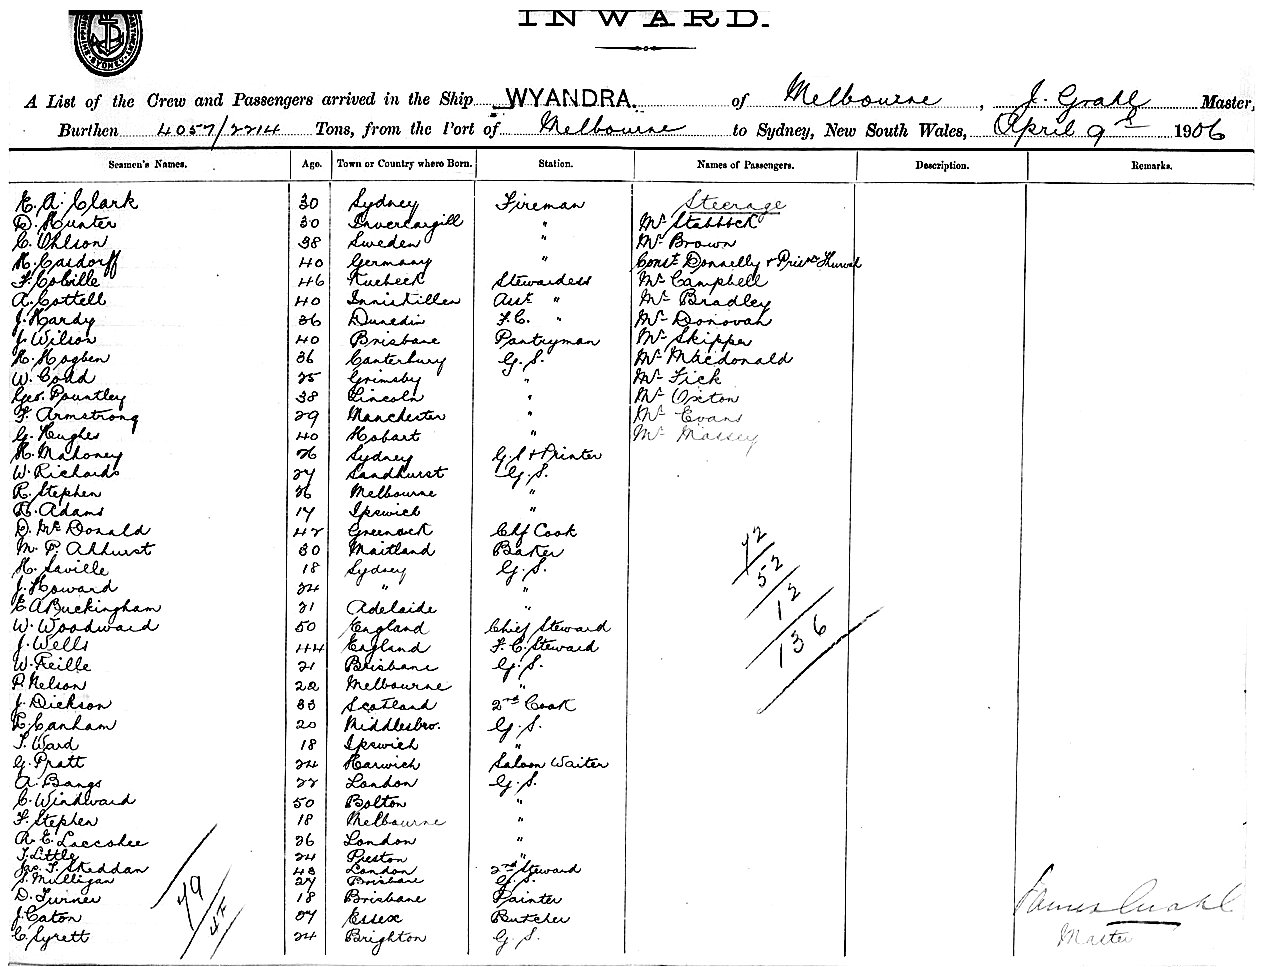 INWARD.
SYDNEY
A List of the Crew and Passengers arrived in the Ship WYANDRA. of Melbourne, J. Grahl Master,
Burthen 4057/2214 Tons, from the Port of Melbourne to Sydney, New South Wales, April 9th 1906
Seamen's Names. Age. Town or Country where Born. Station. Names of Passengers. Description. Remarks.
E. A. Clark 30 Sydney Fireman Steerage
D. Hunter 30 Invercargill " Mr
C. Ohlson 38 Sweden " Mr Brown
H. Casdorff 40 Germany " Const Donnelly +
F. Colville 46 Stewardess Mr Campbell
A. Cottell 40 Inniskillen Asst " Mr Bradley
J. Hardy 36 Dunedin F.C. " Mr Donovan
J. Wilson 40 Brisbane Pantryman Mr Skipper
H. Hogben 36 Canterbury G.S. Mr Macdonald
W. Codd 25 Grimsby " Mr Fick
Geo. Pountley 38 Lincoln " Mr Oxton
F. Armstrong 29 Manchester " Mr Evans
G. Hughes 40 Hobart " Mr Massey
H. Mahoney 26 Sydney G.S + Printer
W. Richards 27 Sandhurst G.S.
R. Stephen 26 Melbourne "
Adams 17 Ipswich "
D. McDonald 42 Greenock Chf Cook
M. F. Ahhurst 30 Maitland Baker
H. Saville 18 Sydney G.S.
J. Howard 24 " "
E A Buckingham 21 Adelaide "
W. Woodward 50 England Chief Steward
J. Wells 44 England F.C. Steward
W. Freille 21 Brisbane G.S.
P. Nelson 22 Melbourne "
J. Dickson 33 Scotland 2nd Cook
Canham 20 Middlesbro. G.S.
T. Ward 18 Ipswich "
G. Pratt 24 Harwich Saloon Waiter
A. Bangs 22 London G.S.
C. Windward 50 Bolton "
F. Stephen 18 Melbourne "
R. E. 26 London "
T. Little 24 Preston
Jas. F. Sheddan 48 London 2nd Steward
J. Mulligan 27 Brisbane G.S.
D. Turner 18 Brisbane Painter
J. Eaton 27 Essex Butcher
C. Syrett 24 Brighton G.S.
72
52
12
136
79
James Grahl
Master